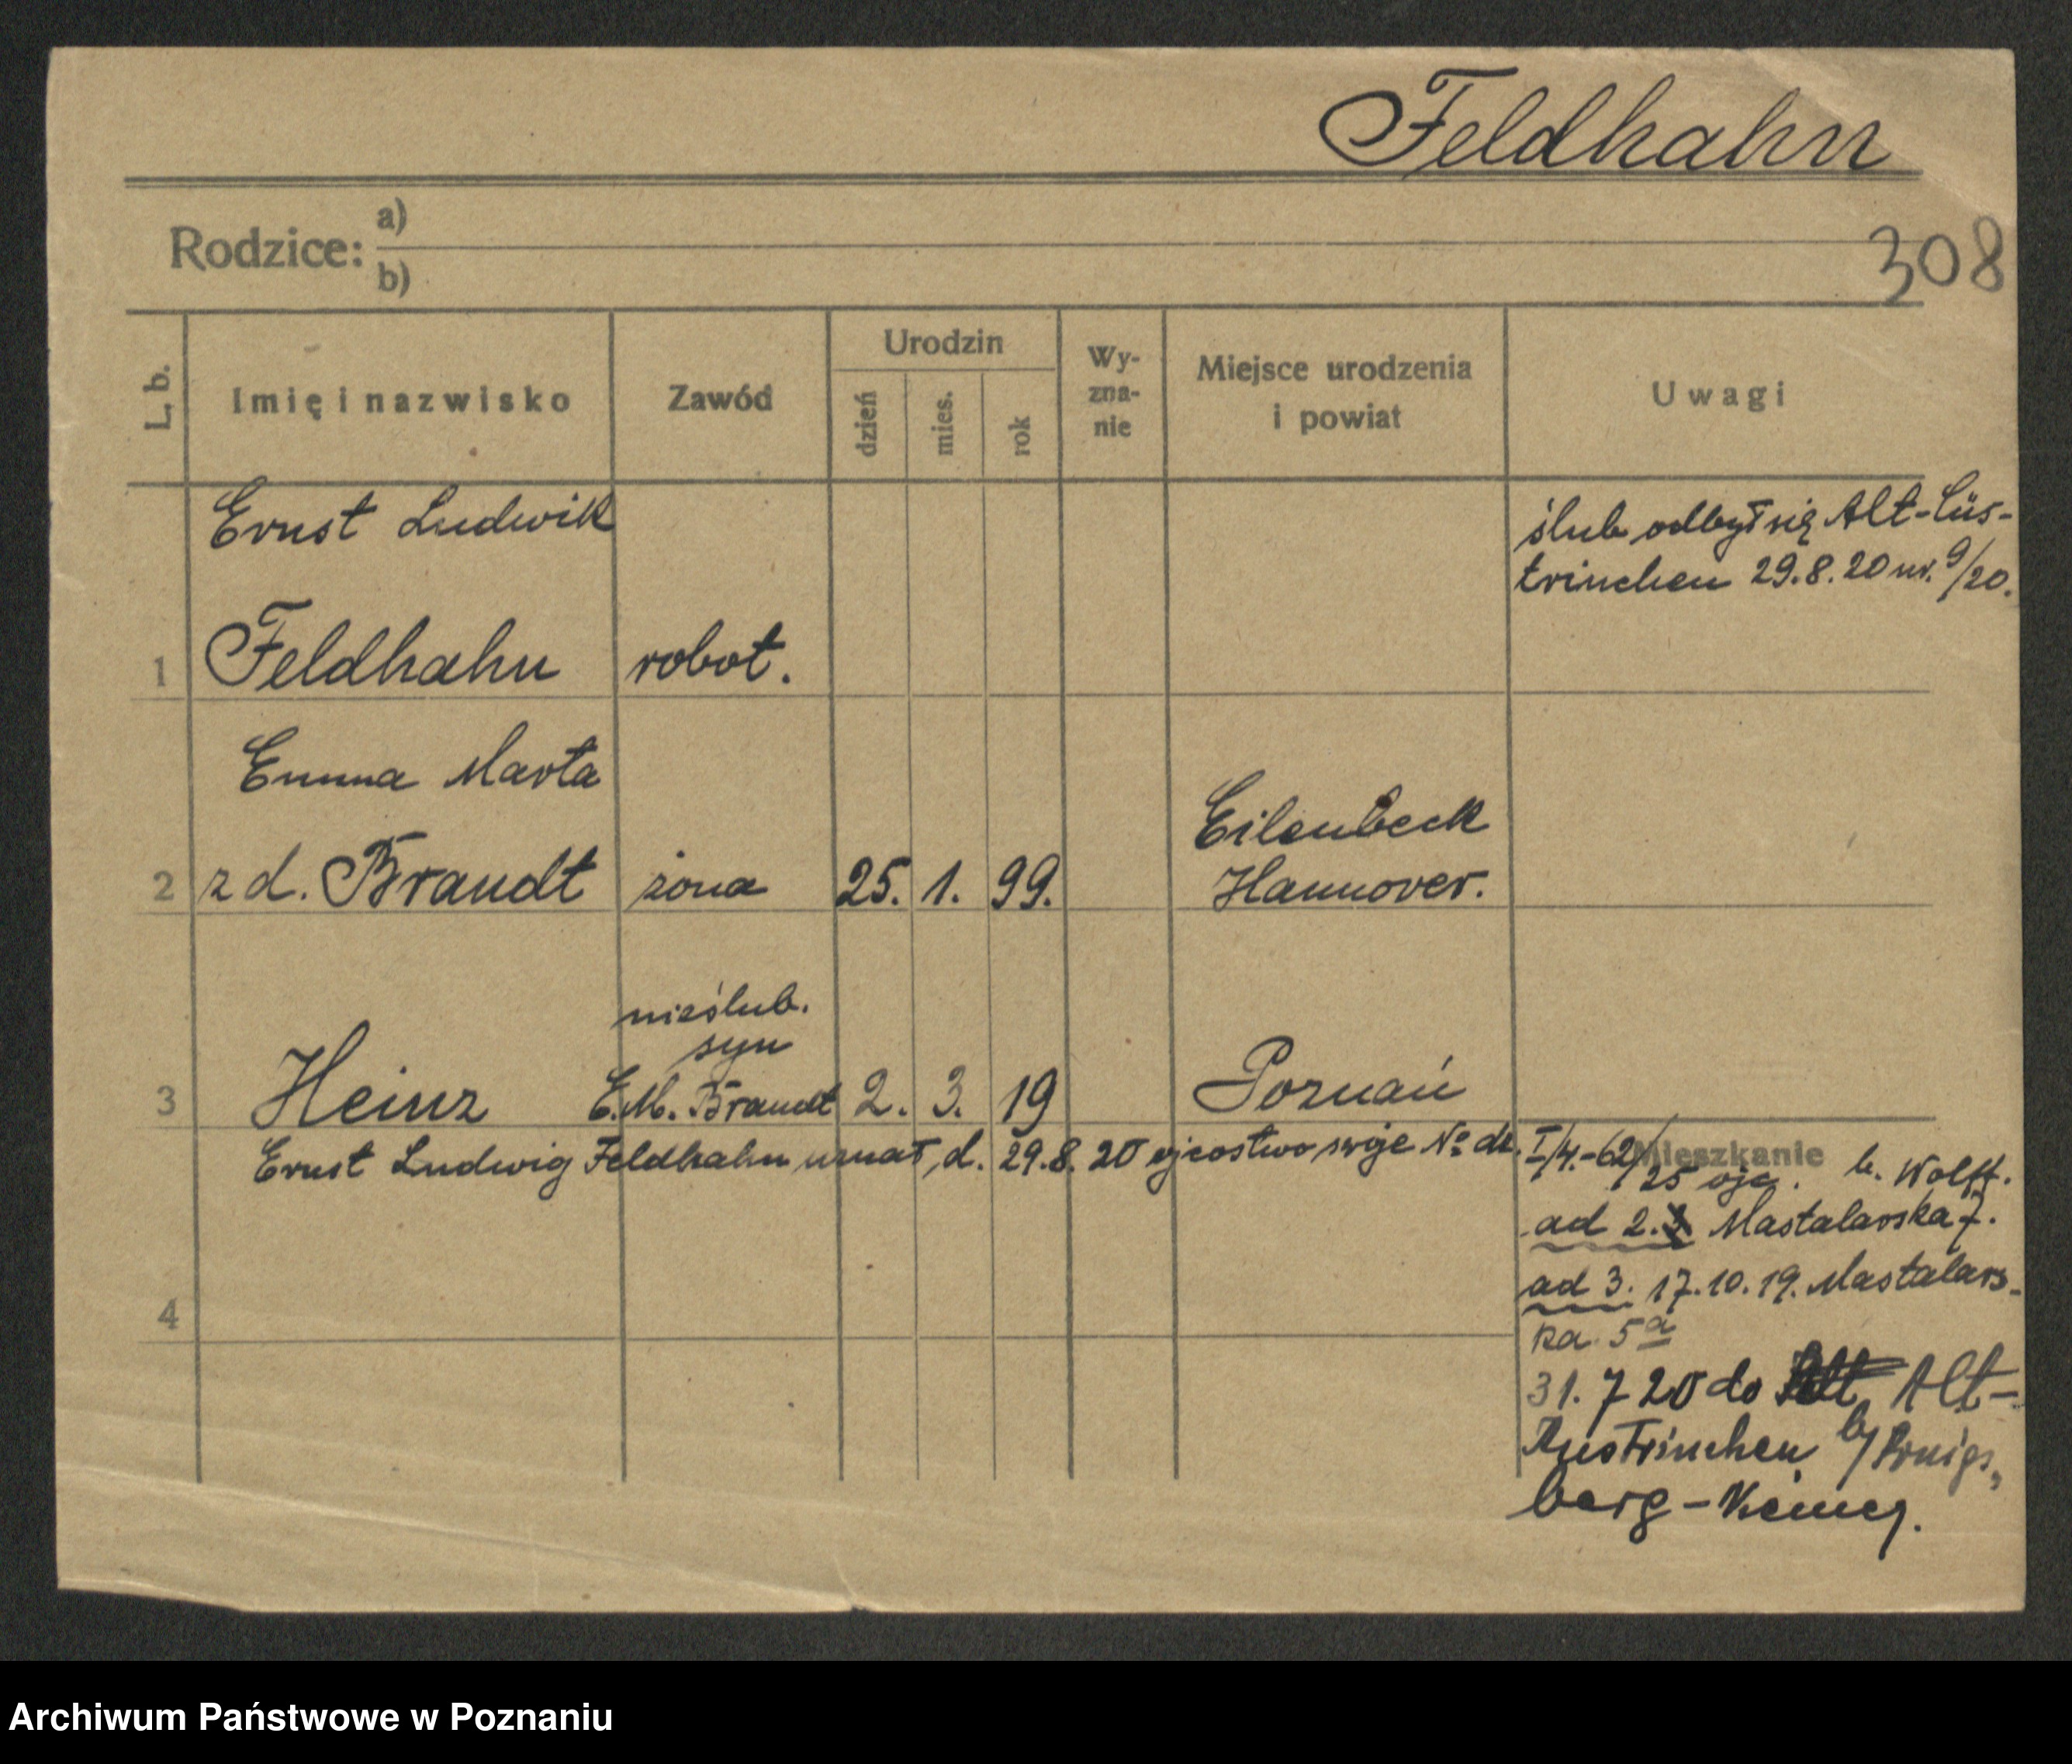 Feldhahn
308
Rodzice: a)
b)
L. b. Imię i nazwisko Zawód Urodzin dzień mies. rok Wy-zna-nie Miejsce urodzenia i powiat Uwagi
Ernst Ludwik
ślub odbył się Alt-Cüs-
trinchen 29.8.20 nr. 9/20.
1 Feldhahn robot.
Emma Marta
Eilenbeck
2 z d. Brandt żona 25. 1. 99. Hannover.
nieślub.
syn
3 Heinz E.M. Brandt 2. 3. 19 Poznań
Ernst Ludwig Feldhahn uznał, d. 29.8.20 ojcostwo swoje No dz. I/4.-62/25 ojc.
Mieszkanie b. Wolff.
ad 2. Mastalarska 7.
ad 3. 17.10.19. Mastalars-
4
ka 5a
31.7 20 do Alt-
Küstrinchen b/ Königs-
berg-
Archiwum Państwowe w Poznaniu